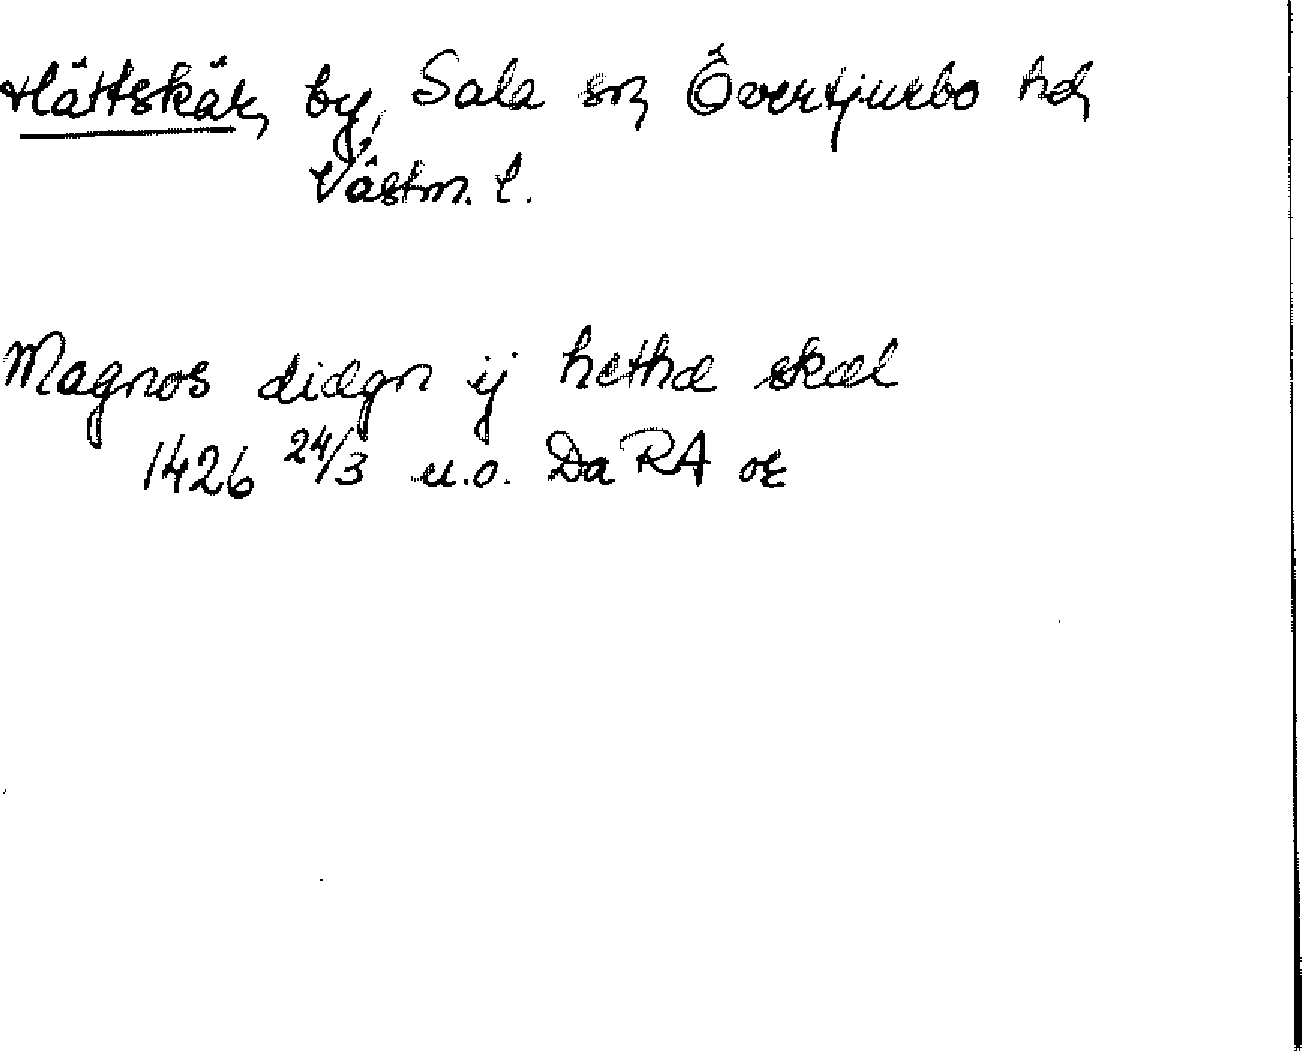 Hättskär, by, Sala sn, Övertjurbo hd,
Västm. l.
Magnos diægn ij hethæ skæl
1426 24/3 u.o. Da RA or